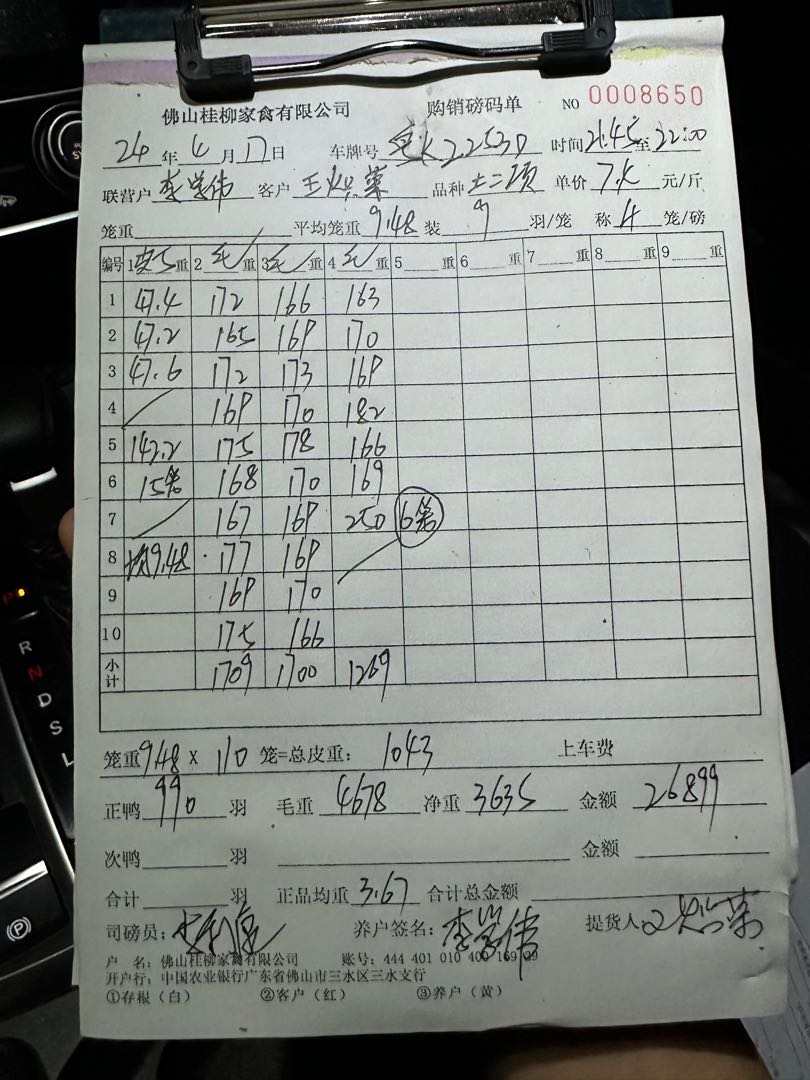 佛山桂柳家禽有限公司 购销磅码单 NO 0008650
24 年 4 月 17 日 车牌号 2253D 时间 21:45 至 22:00
联营户 李学伟 客户 王 品种 土二项 单价 7.4 元/斤
笼重 平均笼重 9.48 装 9 羽/笼 称 4 笼/磅
编号 1 重 2 毛 重 3 毛 重 4 毛 重 5 重 6 重 7 重 8 重 9 重
1 47.4 172 166 163
2 47.2 165 169 170
3 47.6 172 173 169
4 169 170 182
5 142.2 175 178 166
6 15笼 168 170 169
7 167 169 250 6笼
8 均9.48 177 169
9 169 170
10 175 166
小计 1709 1700 1269
笼重 9.48 X 110 笼=总皮重: 1043 上车费
正鸭 990 羽 毛重 4678 净重 3635 金额 26899
次鸭 羽 金额
合计 羽 正品均重 3.67 合计总金额
司磅员: 养户签名: 李学伟 提货人
户 名: 佛山桂柳家禽有限公司 账号: 444 401 010 400 169
开户行: 中国农业银行广东省佛山市三水区三水支行
①存根（白） ②客户（红） ③养户（黄）
P
R
N
D
S
L